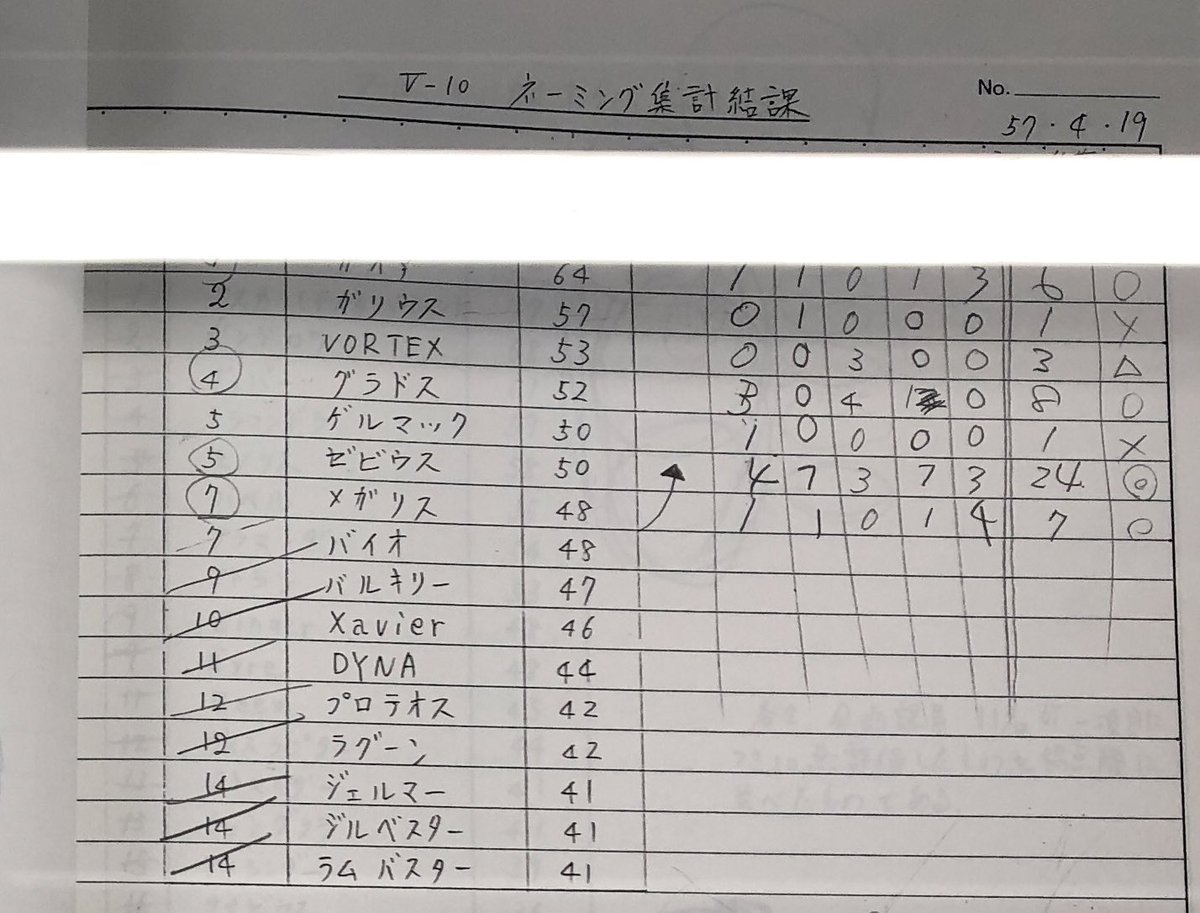 V-10 ネーミング集計結課
No.
57・4・19
64 1 1 0 1 3 6 ○
2 ガリウス 57 0 1 0 0 0 1 ×
3 VORTEX 53 0 0 3 0 0 3 △
4 グラドス 52 3 0 4 1 0 8 ○
5 ゲルマック 50 1 0 0 0 0 1 ×
5 ゼビウス 50 4 7 3 7 3 24 ◎
7 メガリス 48 1 1 0 1 4 7 ○
7 バイオ 48
9 バルキリー 47
10 Xavier 46
11 DYNA 44
12 プロテオス 42
12 ラグーン 42
14 ジェルマー 41
14 ジルベスター 41
14 ラムバスター 41